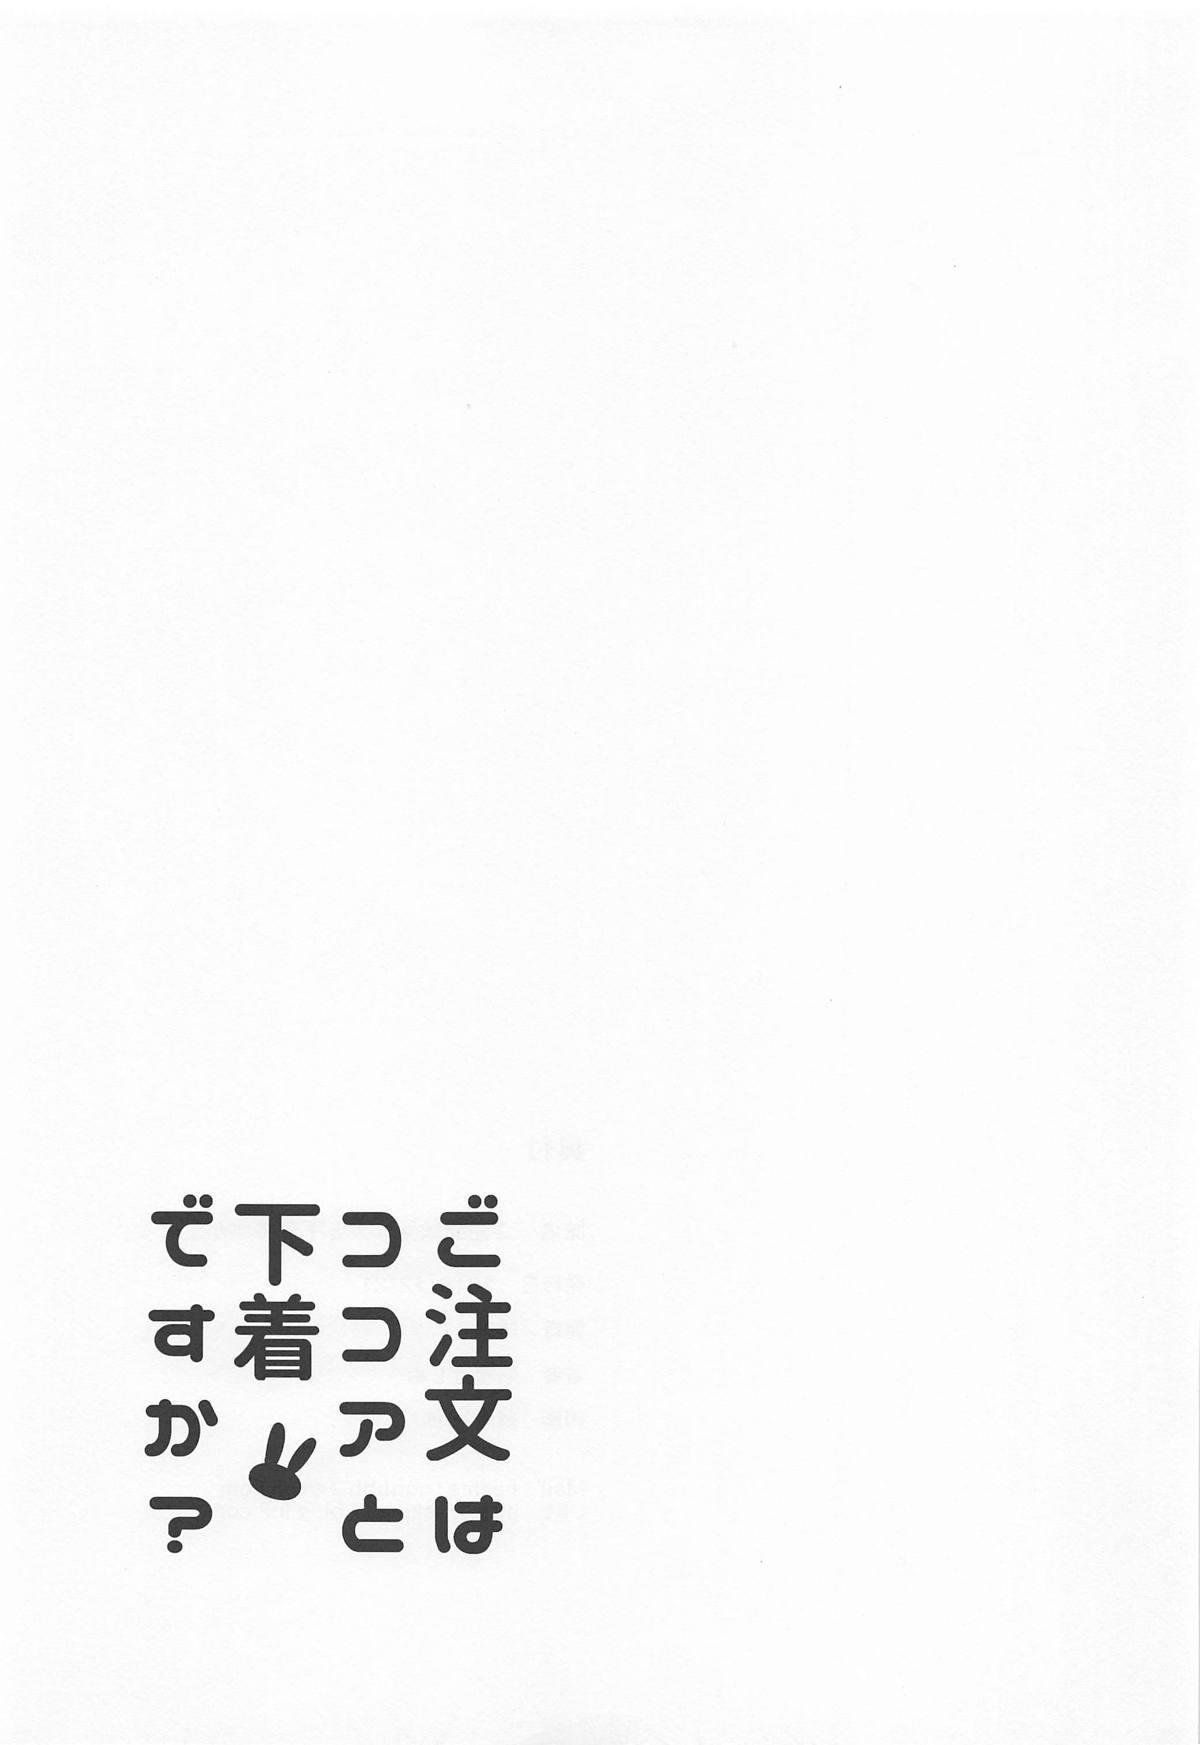 ご注文は
ココアと
下着
ですか?